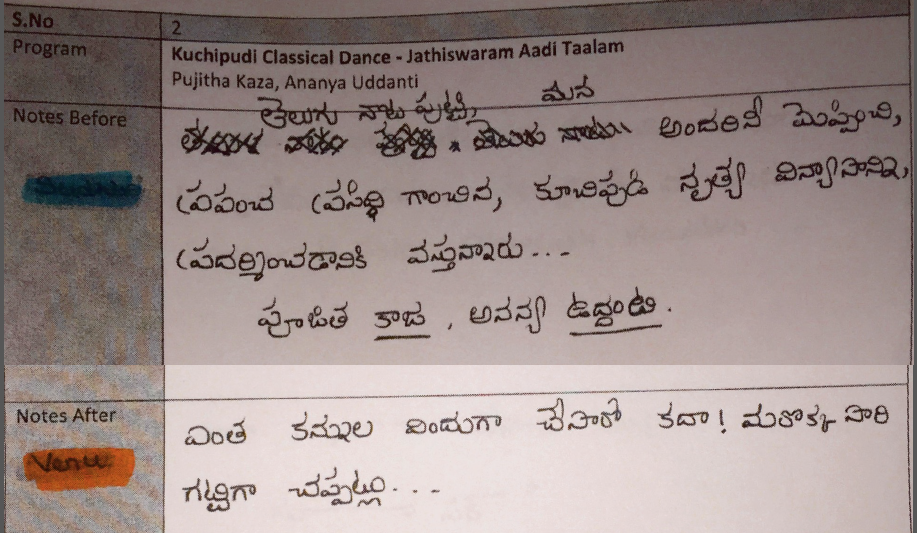 S.No 2
Program Kuchipudi Classical Dance - Jathiswaram Aadi Taalam
Pujitha Kaza, Ananya Uddanti
Notes Before తెలుగు నాట పుట్టి, మన
అందరినీ మెప్పించి,
ప్రపంచ ప్రసిద్ధి గాంచిన, కూచిపుడి నృత్య విన్యాసాన్ని,
ప్రదర్శించడానికి వస్తున్నారు...
పూజిత కాజ, అనన్య ఉద్దంటి.
Notes After ఎంత కన్నుల విందుగా చేసారో కదా! మరొక్క సారి
Venu
గట్టిగా చప్పట్లు...